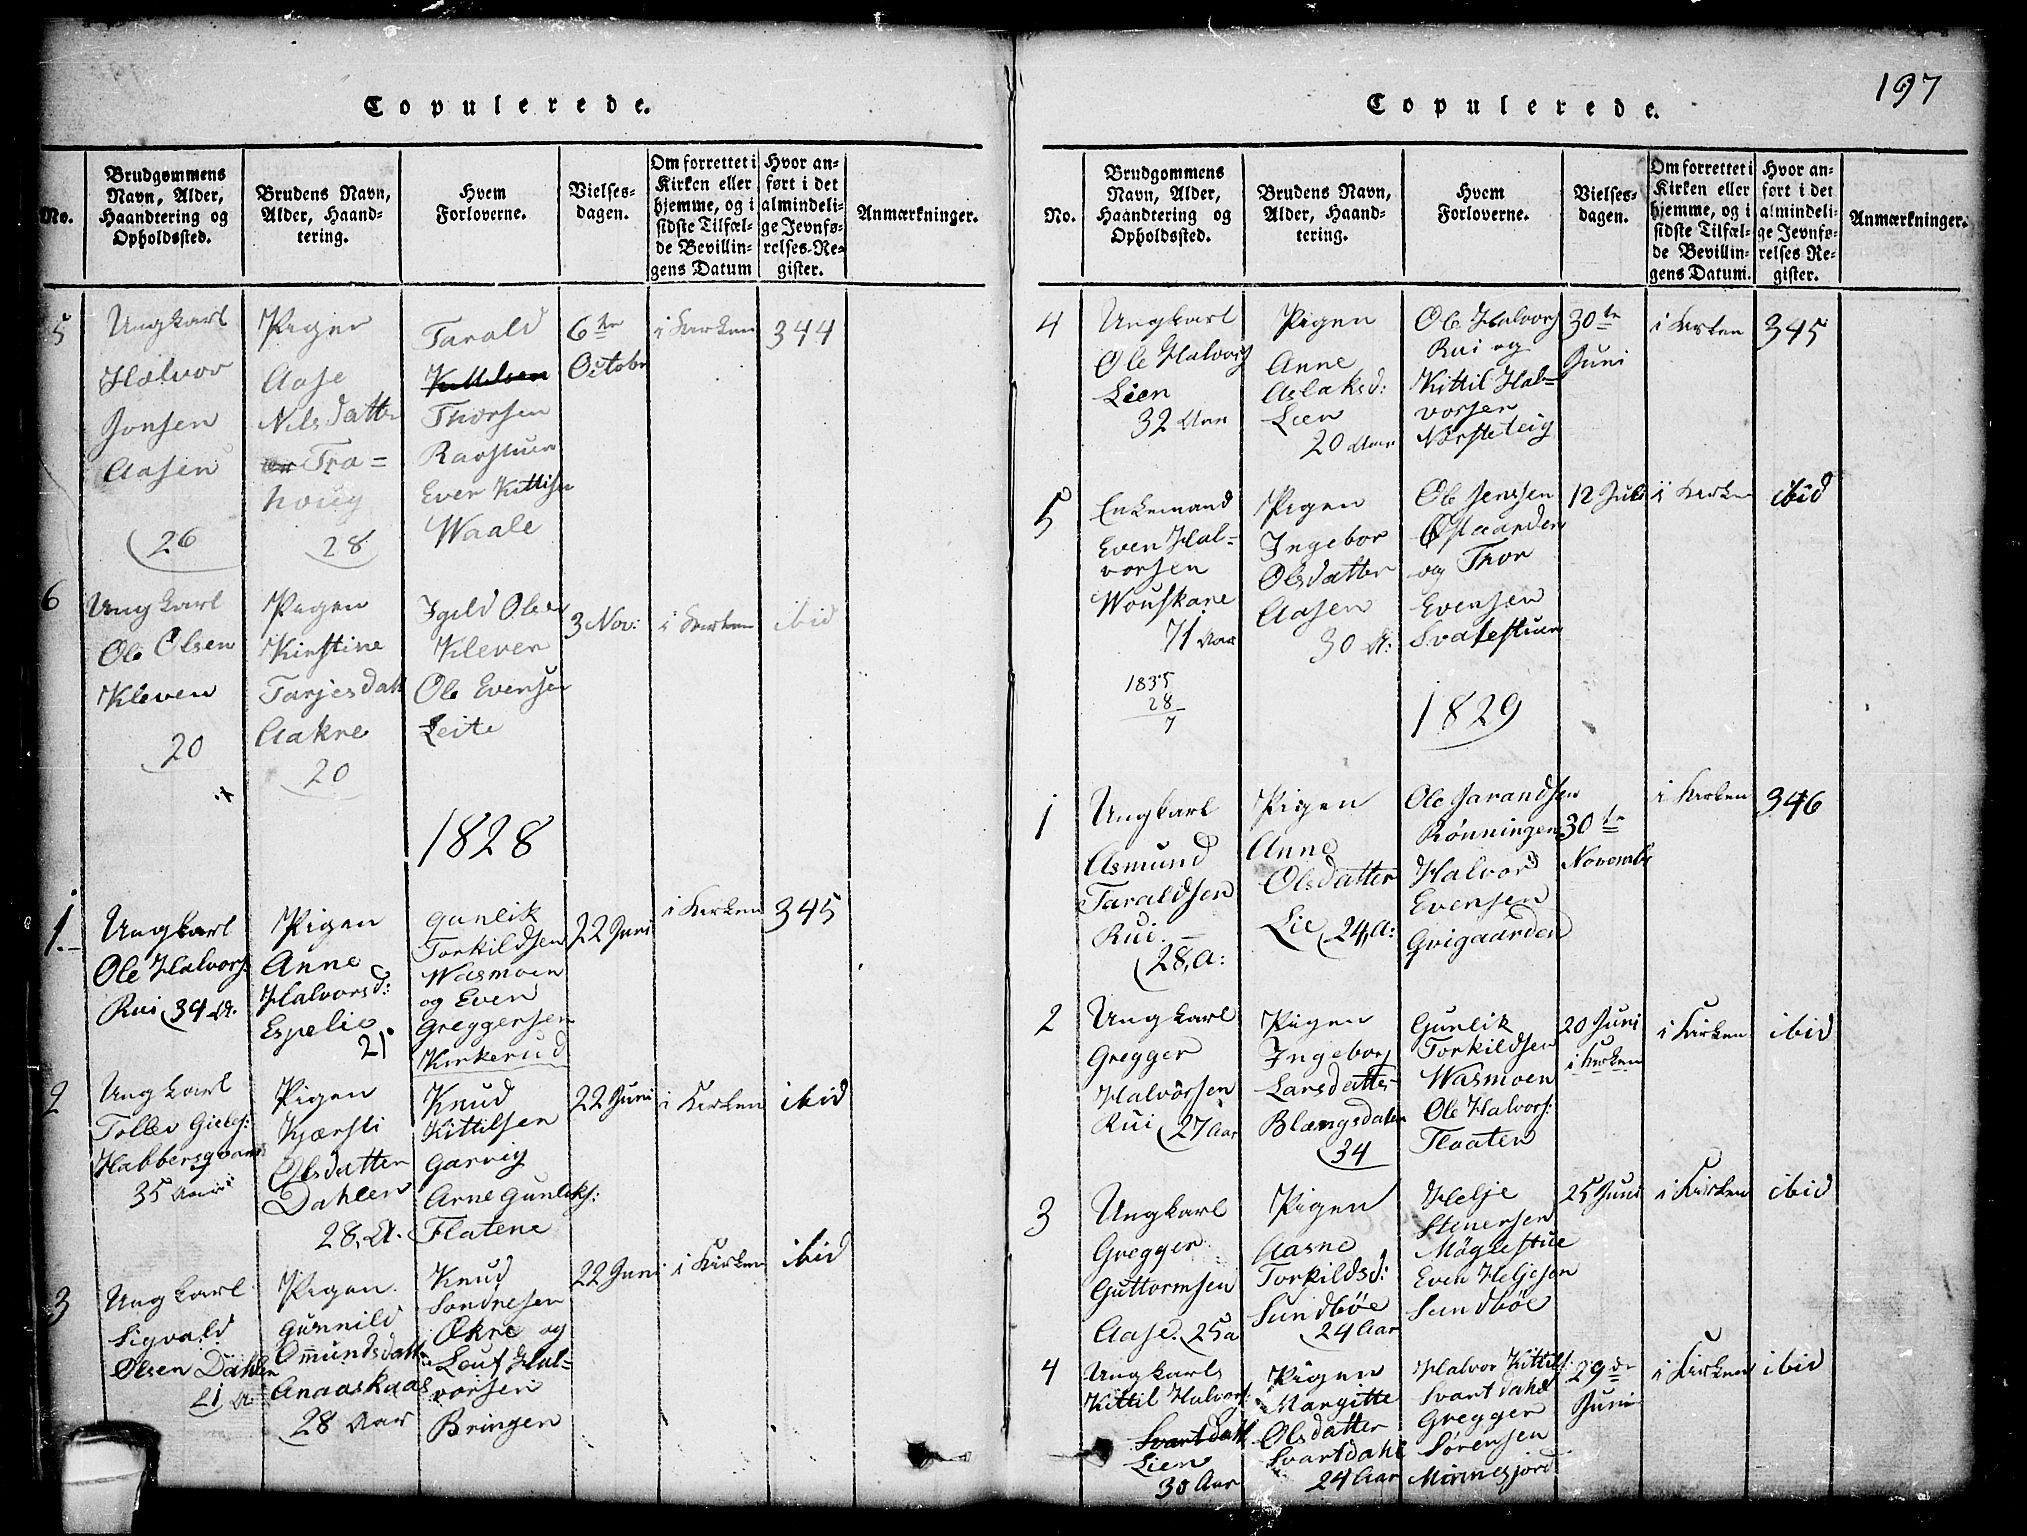 Copulerede.
No.
Brudgommens
Navn, Alder,
Haandtering og
Opholdssted.
Brudens Navn,
Alder, Haand-
tering.
Hvem
Forloverne.
Vielses-
dagen.
Om forrettet i
Kirken eller
hjemme, og i
sidste Tilfæl-
de Bevillin-
gens Datum
Hvor an-
ført i det
almindeli-
ge Jevnfø-
relses-Re-
gister.
Anmærkninger.
5
Ungkarl
Halvor
Jonsen
Aasen
26
Pigen
Aase
Nilsdatter
Tra=
houg
28
Tarald
Kittilsen
Thorsen
Ravstuen
Even Kittilsen
Waale
6te
Octobr
i Kirken
344
6
Ungkarl
Ole Olsen
Kleven
20
Pigen
Kirstine
Tarjesdatt
Aakre
20
Igild Olsen
Kleven
Ole Evensen
Leite
3 Nov:
i Kirken
ibid
1828
1.
Ungkarl
Ole Halvors:
Rui 34 A.
Pigen
Anne
Halvorsd:
Espelie
21
Gunlik
Torkildsen
Wasmoen
og Even
Greggersen
Kirkerud
22 Juni
i Kirken
345
2
Ungkarl
Tollev
35 Aar
Pigen
Kjærsti
Olsdatter
Dahlen
28. A.
Knud
Kittilsen
Garvig
Arne Gunliks:
Flatene
22 Juni
i Kirken
ibid
3
Ungkarl
Sigvald
Olsen Dahlen
21 A.
Pigen
Gunnild
Omundsdatter
Anaaskaas
28 Aar
Knud
Sondresen
Økre og
Leuf Hal=
vorsen
Bringen
22 Juni
i Kirken
ibid
197
Copulerede.
No.
Brudgommens
Navn, Alder,
Haandtering og
Opholdssted.
Brudens Navn,
Alder, Haand-
tering.
Hvem
Forloverne.
Vielses-
dagen.
Om forrettet i
Kirken eller
hjemme, og i
sidste Tilfæl-
de Bevillin-
gens Datum.
Hvor an-
ført i det
almindeli-
ge Jevnfø-
relses Re-
gister.
Anmærkninger.
4
Ungkarl
Ole Halvors
Lien
32 Aar
Pigen
Anne
Aslaksd:
Lien
20 Aar
Ole Halvors
Rui og
Kittil Hal=
vorsen
Nørsteteig
30te
Juni
i Kirken
345
5
Enkemand
Even Hal=
vorsen
Wouskare
71 Aar
1835
28
7
Pigen
Ingebor
Olsdatter
Aasen
30 A:
Ole Jenssen
Øygaarden
og Thor
Evensen
Svalestuen
12 Juli
i Kirken
ibid
1829
1
Ungkarl
Asmund
Taraldsen
Rui.
28, A:
Pigen
Anne
Olsdatter
Lie 24, A:
Ole Jarandsen
Rønningen
Halvor
Evensen
Gvigaarden
30te
Novembr
i Kirken
346
2
Ungkarl
Gregger
Halvorsen
Rui 27 Aar
Pigen
Ingeborg
Larsdatter
Blængsdalen
34
Gunlik
Torkildsen
Wasmoen
Ole Halvors:
Flaaten
20 Juni
i Kirken
i Kirken
ibid
3
Ungkarl
Gregger
Guttormsen
Aase. 25 a
Pigen
Aasne
Torkildsd:
Sundbøe
24 Aar
Helje
Stenersen
Møglestue
Even Heljesen
Sundbøe
25 Juni
i Kirken
ibid
4
Ungkarl
Kittil Halvors:
Svartdahl
Lien
30 Aar
Pigen
Margitte
Olsdatter
Svartdahl
24 Aar
Halvor Kittils:
Svartdahl
Gregger
Sørensen
Minnesjord
29de
Juni
i Kirken
ibid